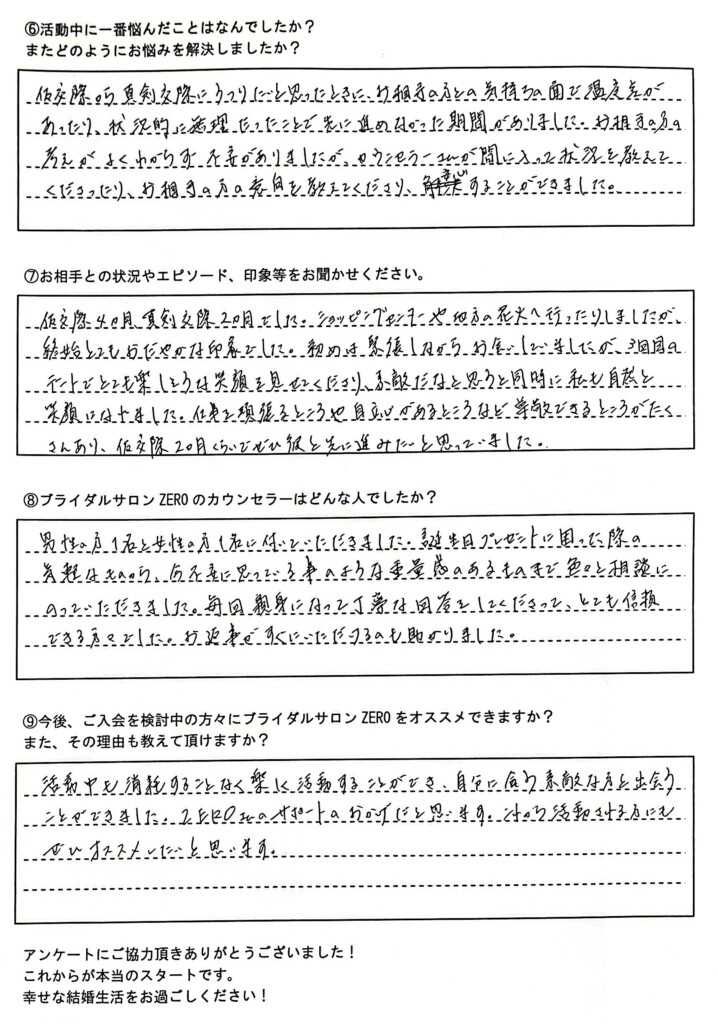 ⑥活動中に一番悩んだことはなんでしたか？
またどのようにお悩みを解決しましたか？
仮交際から真剣交際にうつりたいと思ったときに、お相手の方との気持ちの面で温度差が
あったり、状況的に無理だったことで先に進めなかった期間がありました。お相手の方の
考えがよくわからず不安がありましたが、カウンセラーさんが間に入って状況を教えて
くださったり、お相手の方の意向を教えてくださり、解決することができました。
⑦お相手との状況やエピソード、印象等をお聞かせください。
仮交際4ヶ月、真剣交際2ヶ月でした。ショッピングセンターや地方の花火へ行ったりしましたが、
終始とてもおだやかな印象でした。初めは緊張しながらお会いしていましたが、3回目の
デートでとても楽しそうな笑顔を見せてくださり、素敵だなと思うと同時に私も自然と
笑顔になれました。仕事を頑張るところや自立心があるところなど尊敬できるところがたく
さんあり、仮交際2ヶ月くらいでぜひ彼と先に進みたいと思っていました。
⑧ブライダルサロン ZERO のカウンセラーはどんな人でしたか？
男性の方1名と女性の方1名に付いていただきました。誕生日プレゼントに困った際の
気軽なものから、今不安に思っている事のような重量感のあるものまで色々と相談に
のっていただきました。毎回親身になって丁寧な回答をしてくださって、とても信頼
できる方々でした。お返事がすぐにいただけるのも助かりました。
⑨今後、ご入会を検討中の方々にブライダルサロン ZERO をオススメできますか？
また、その理由も教えて頂けますか？
活動中も消耗することなく楽しく活動することができ、自分に合う素敵な方と出会う
ことができました。ZEROさんのサポートのおかげだと思います。これから活動される方にも
ぜひオススメしたいと思います。
アンケートにご協力頂きありがとうございました！
これからが本当のスタートです。
幸せな結婚生活をお過ごしください！